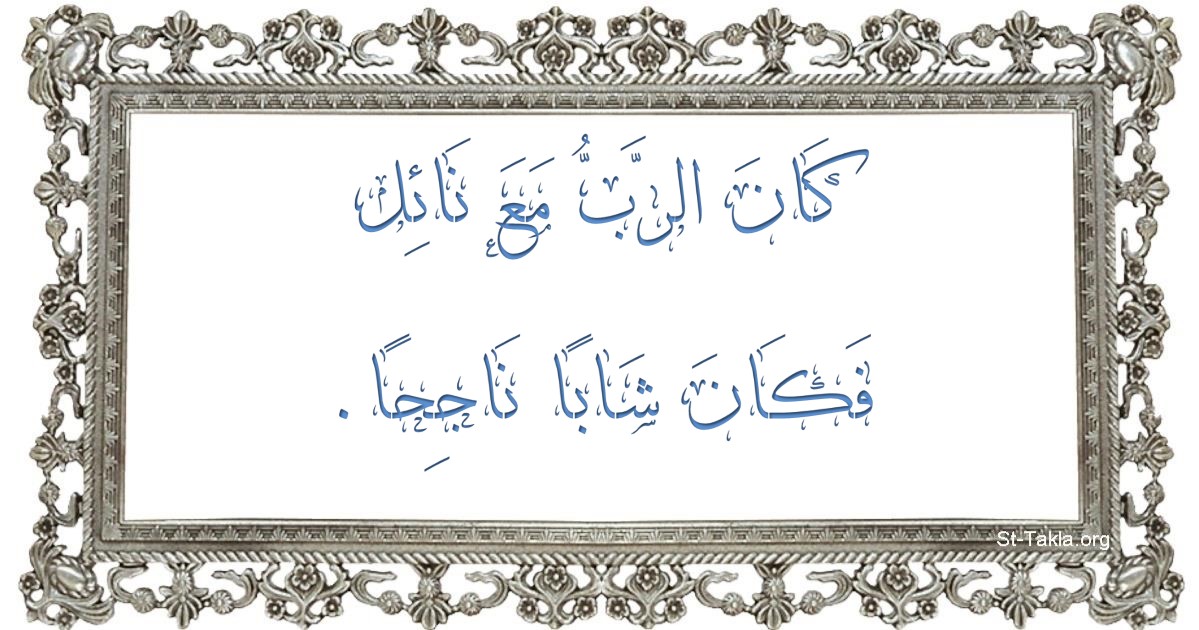 كَانَ الرَّبُّ مَعَ نَائِل
فَكَانَ شَابًا نَاجِحًا .
St-Takla.org